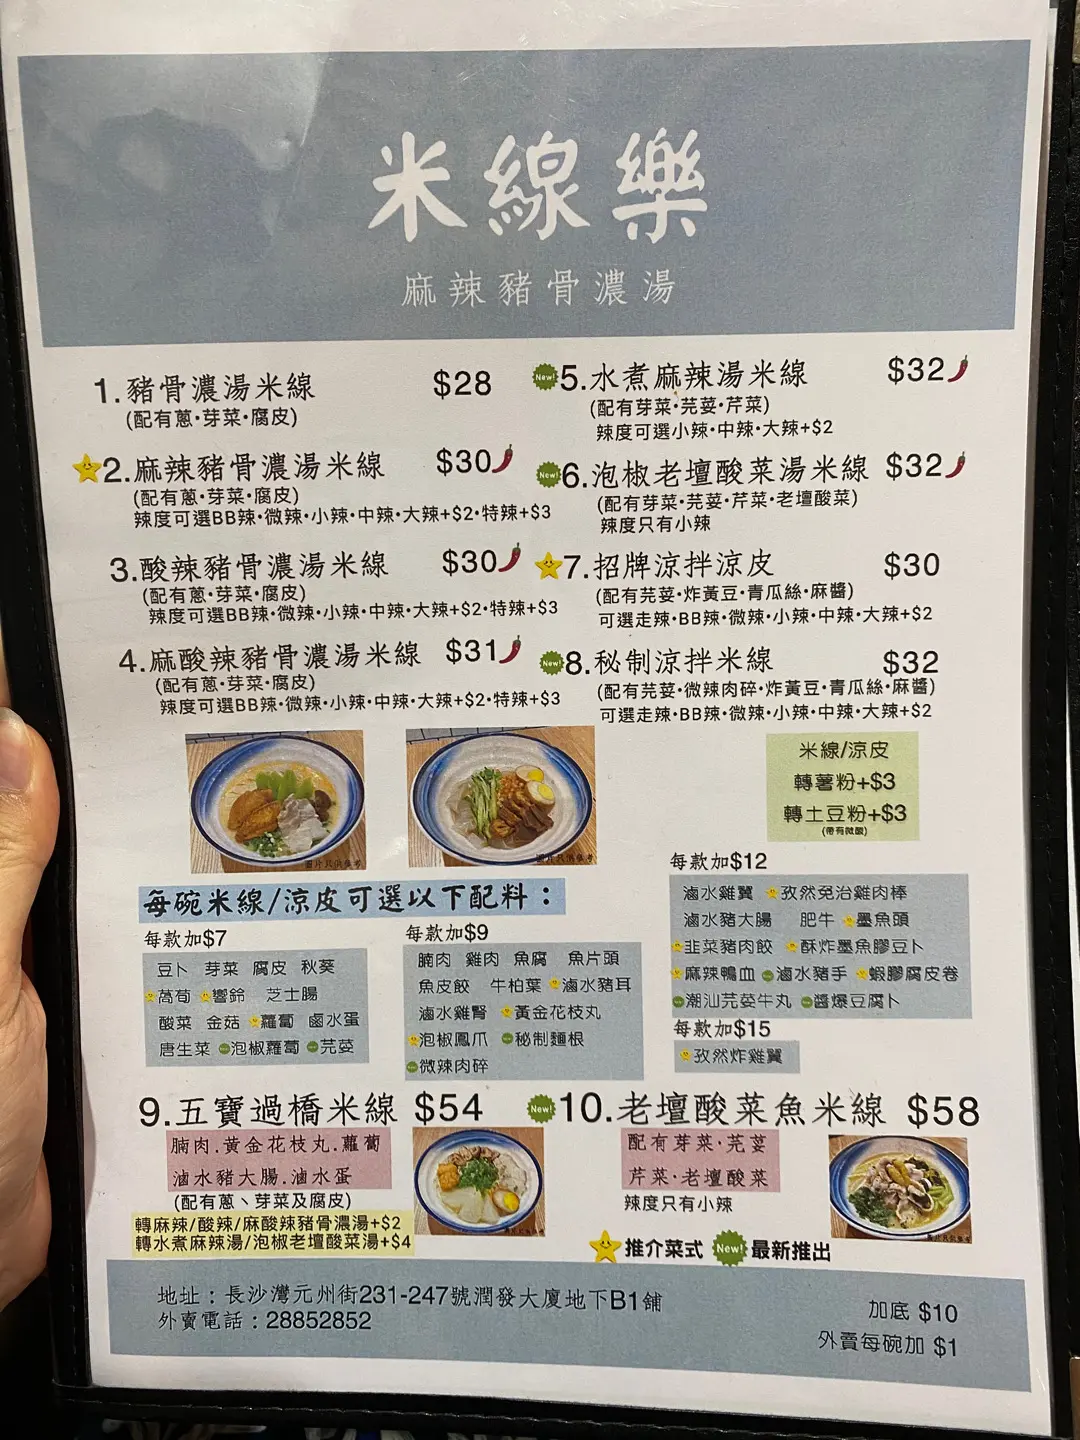 米線樂
麻辣豬骨濃湯
1.豬骨濃湯米線 $28
(配有蔥·芽菜·腐皮)
2.麻辣豬骨濃湯米線 $30
(配有蔥·芽菜·腐皮)
辣度可選BB辣·微辣·小辣·中辣·大辣+$2·特辣+$3
3.酸辣豬骨濃湯米線 $30
(配有蔥·芽菜·腐皮)
辣度可選BB辣·微辣·小辣·中辣·大辣+$2·特辣+$3
4.麻酸辣豬骨濃湯米線 $31
(配有蔥·芽菜·腐皮)
辣度可選BB辣·微辣·小辣·中辣·大辣+$2·特辣+$3
New! 5.水煮麻辣湯米線 $32
(配有芽菜·芫荽·芹菜)
辣度可選小辣·中辣·大辣+$2
New! 6.泡椒老壇酸菜湯米線 $32
(配有芽菜·芫荽·芹菜·老壇酸菜)
辣度只有小辣
7.招牌涼拌涼皮 $30
(配有芫荽·炸黃豆·青瓜絲·麻醬)
可選走辣·BB辣·微辣·小辣·中辣·大辣+$2
New! 8.秘制涼拌米線 $32
(配有芫荽·微辣肉碎·炸黃豆·青瓜絲·麻醬)
可選走辣·BB辣·微辣·小辣·中辣·大辣+$2
圖片只供參考
圖片只供參考
米線/涼皮
轉薯粉+$3
轉土豆粉+$3
(帶有微酸)
每碗米線/涼皮可選以下配料：
每款加$7
豆卜 芽菜 腐皮 秋葵
萵筍 響鈴 芝士腸
酸菜 金菇 蘿蔔 鹵水蛋
唐生菜 泡椒蘿蔔 芫荽
每款加$9
腩肉 雞肉 魚腐 魚片頭
魚皮餃 牛柏葉 滷水豬耳
滷水雞腎 黃金花枝丸
泡椒鳳爪 秘制麵根
微辣肉碎
每款加$12
滷水雞翼 孜然免治雞肉棒
滷水豬大腸 肥牛 墨魚頭
韭菜豬肉餃 酥炸墨魚膠豆卜
麻辣鴨血 滷水豬手 蝦膠腐皮卷
潮汕芫荽牛丸 醬爆豆腐卜
每款加$15
孜然炸雞翼
9.五寶過橋米線 $54
腩肉.黃金花枝丸.蘿蔔
滷水豬大腸.滷水蛋
(配有蔥、芽菜及腐皮)
轉麻辣/酸辣/麻酸辣豬骨濃湯+$2
轉水煮麻辣湯/泡椒老壇酸菜湯+$4
New! 10.老壇酸菜魚米線 $58
配有芽菜·芫荽
芹菜·老壇酸菜
辣度只有小辣
推介菜式 New! 最新推出
地址：長沙灣元州街231-247號潤發大廈地下B1舖
外賣電話：28852852
加底 $10
外賣每碗加 $1